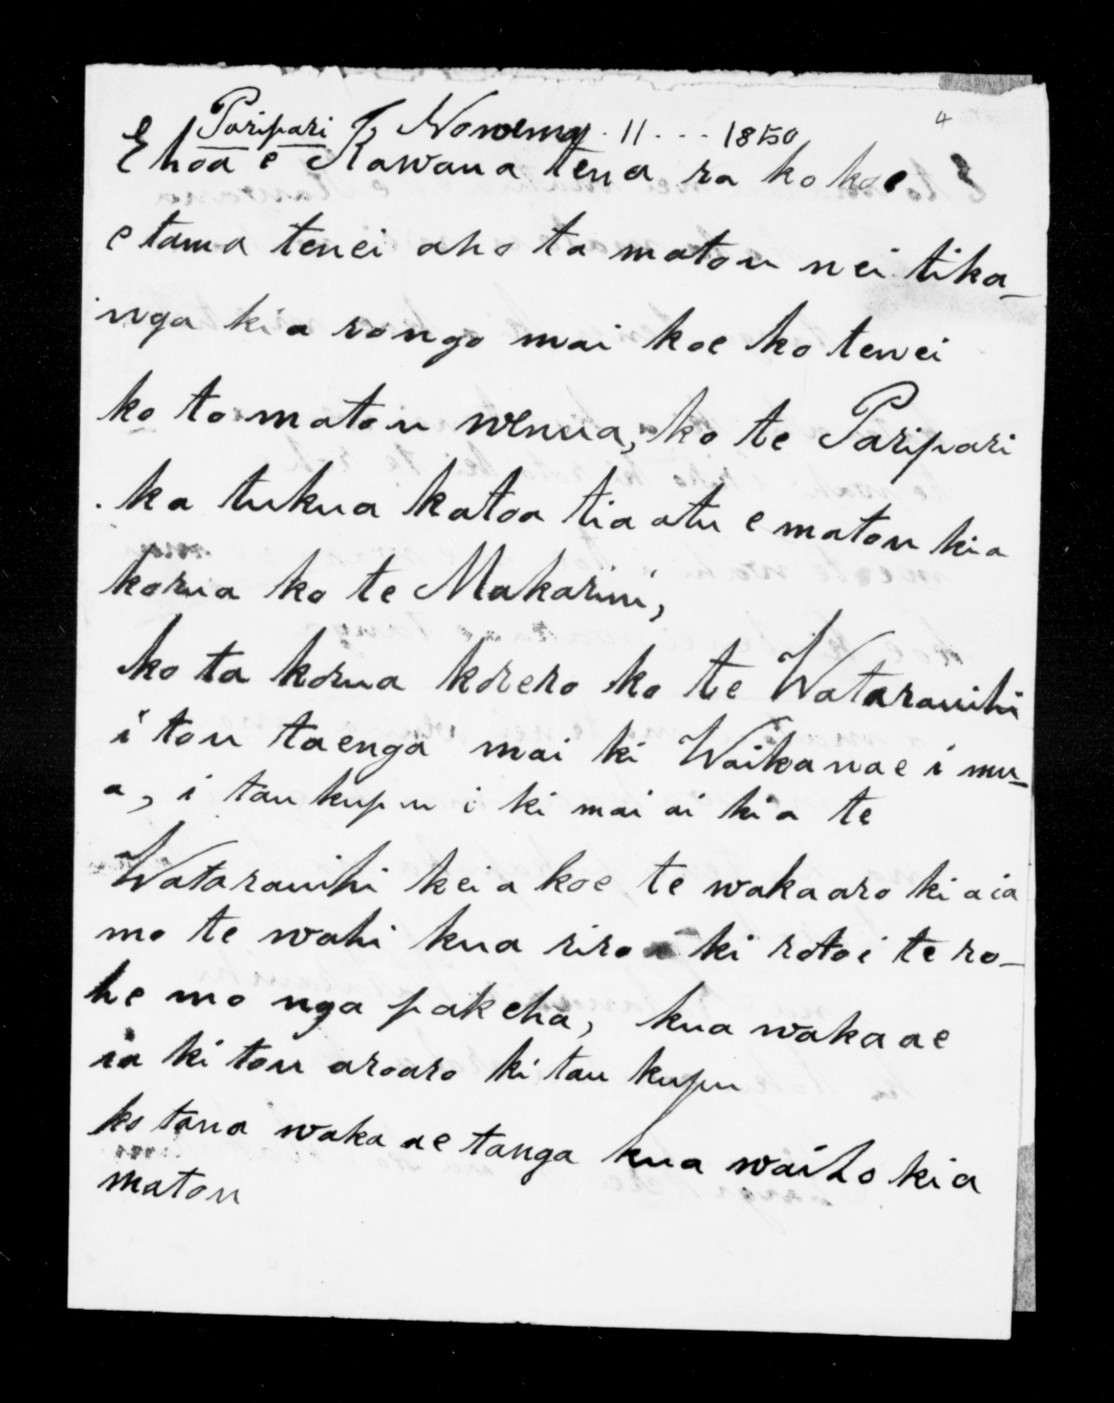 4
Paripari Nowema 11 - - - 1850
E hoa e Kawana tena ra ko koe
e tama tenei ano ta matou nei tika-
nga kia rongo mai koe ko tenei
ko to matou wenua, ko te Paripari
ka tukua katoa tia atu e matou kia
korua ko te Makarini,
ko ta korua korero ko te Wataranihi
i tou taenga mai ki Waikanae i mu-
a, i tau kupu i ki mai ai kia te
Wataranihi kei a koe te wakaaro ki a ia
mo te wahi kua riro ki roto i te ro-
he mo nga pakeha, kua wakaae
ia ki tou aroaro ki tau kupu
ko tana wakaaetanga kua waiho kia
matou